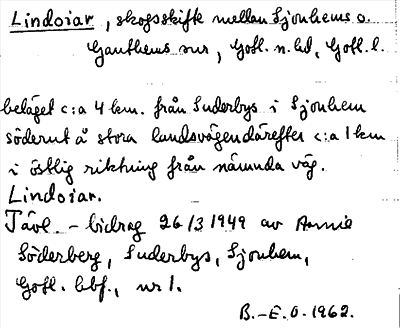 Lindoiar, skogsskifte mellan Sjonhems o.
Ganthems snr, Gotl. n. hd, Gotl. l.
beläget c:a 4 km. från Suderbys i Sjonhem
söderut å stora landsvägen därefter c:a 1 km
i östlig riktning från nämnda väg.
Lindoiar.
Tävl. - bidrag 26/3 1949 av Annie
Söderberg, Suderbys, Sjonhem,
Gotl. hbf., nr 1.
B.-E. O. 1962.